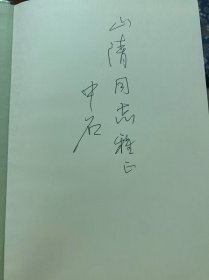 山清同志雅正
中石